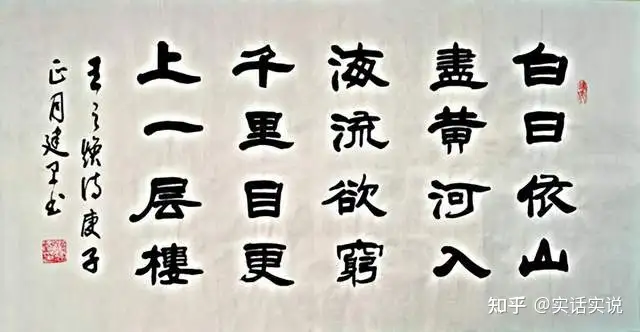 白日依山
盡黄河入
海流欲窮
千里目更
上一层樓
王之渙诗庚子
正月建军书
知乎 @实话实说